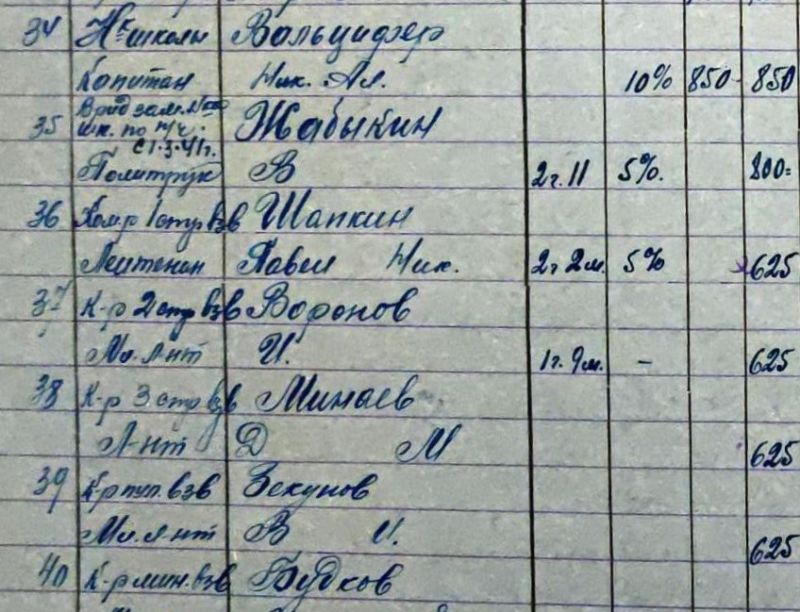 34 Нк школы Вольцифер
Капитан Ник. Ал. 10% 850- 850
Врид зам. Нач
35 шк. по п/ч. Жабыкин
с 1.3.41г.
Политрук В 2г. 11 5%. 800=
36 Комр 1 стр взв Шапкин
Лейтенан Павел Ник. 2г 2м. 5% 625
37 К-р 2 стр взв Воронов
Мл. Л-нт И. 1г. 9м. - 625
38 К-р 3 стр взв Минаев
Л-нт Д М 625
39 К-р пул. взв Зекунов
Мл. л-нт В И. 625
40 К-р мин. взв Будков